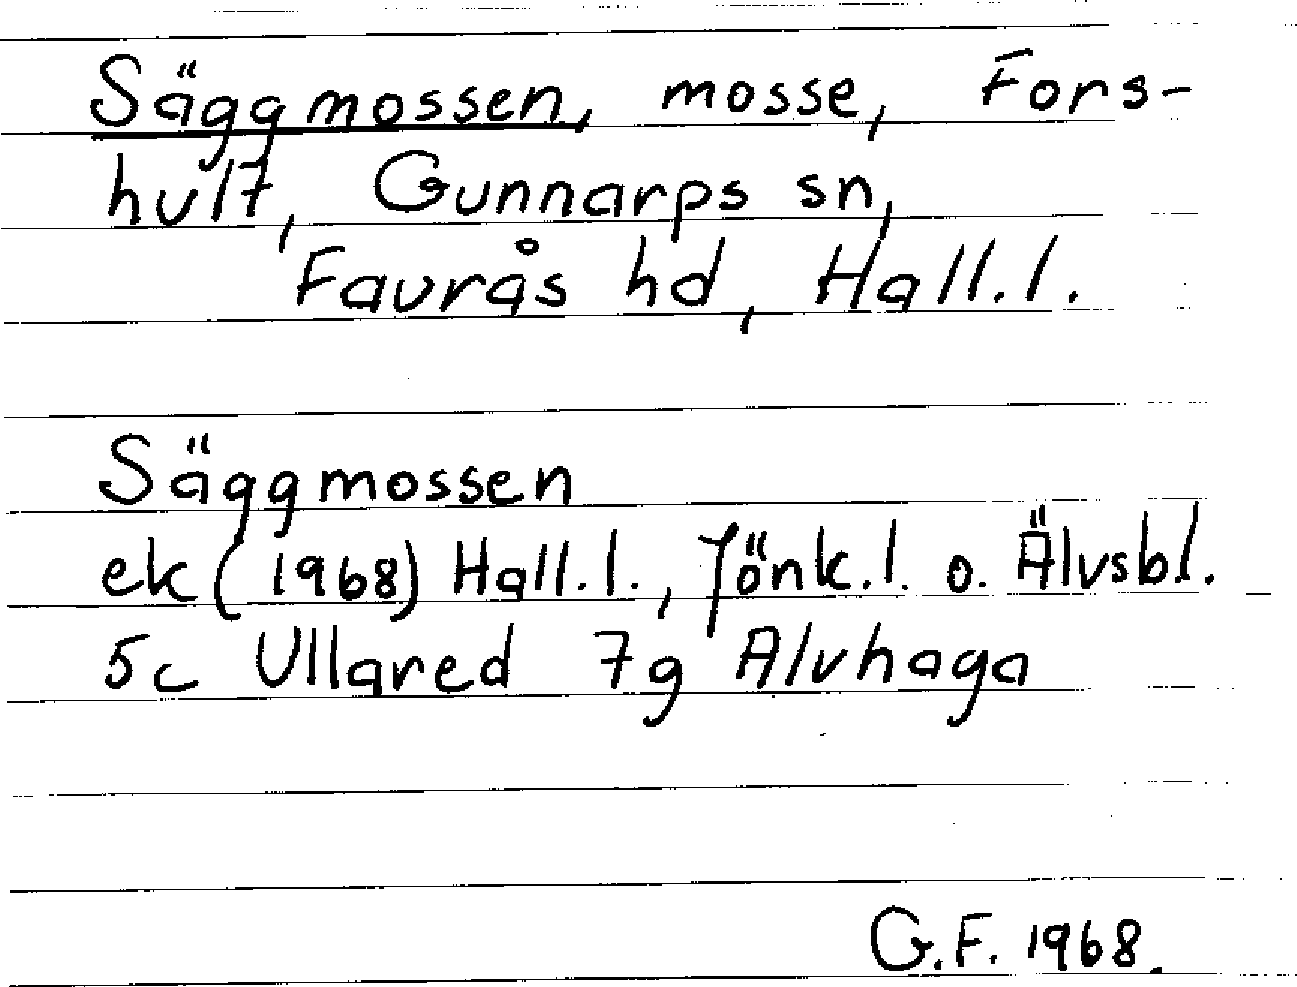 Säggmossen, mosse, Fors-
hult, Gunnarps sn,
Faurås hd, Hall.l.
Säggmossen
ek (1968) Hall.l., Jönk.l. o. Älvsbl.
5c Ullared 7g Alvhaga
G.F. 1968.